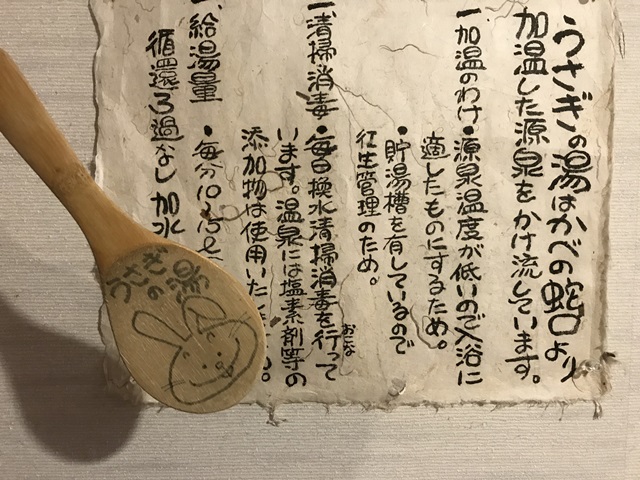 うさぎの湯はかべの蛇口より
加温した源泉をかけ流しています。
一加温のわけ・源泉温度が低いので入浴に
適したものにするため。
・貯湯槽を有しているので
衛生管理のため。
一清掃消毒・毎日換水清掃消毒を行って
おこな
います。温泉には塩素剤等の
添加物は使用いた
。
一、給湯量・毎分10〜15ℓ
循還ろ過なし加水
うさぎの湯